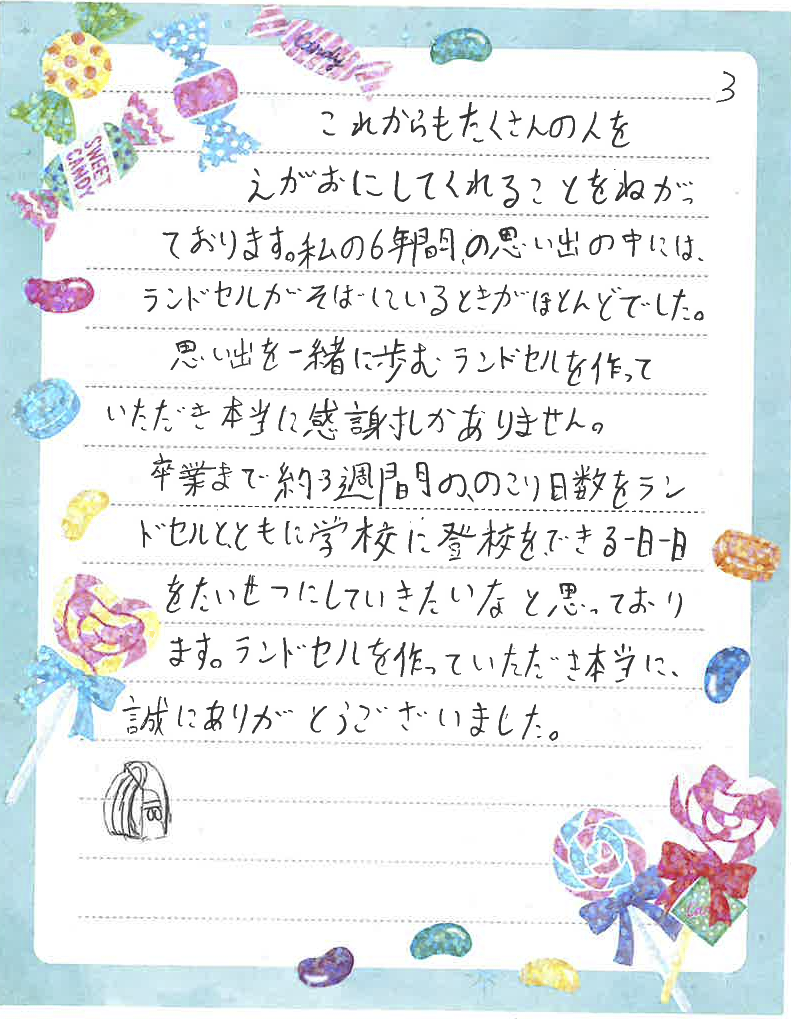 Candy
SWEET
CANDY
3
これからもたくさんの人を
えがおにしてくれることをねがっ
ております。私の6年間、の思い出の中には、
ランドセルがそばにいるときがほとんどでした。
思い出を一緒に歩む ランドセルを作って
いただき本当に感謝しかありません。
卒業まで約3週間の、のこり日数をラン
ドセルと、ともに学校に登校をできる一日一日
をたいせつにしていきたいなと思っており
ます。ランドセルを作っていただき本当に、
誠にありがとうございました。